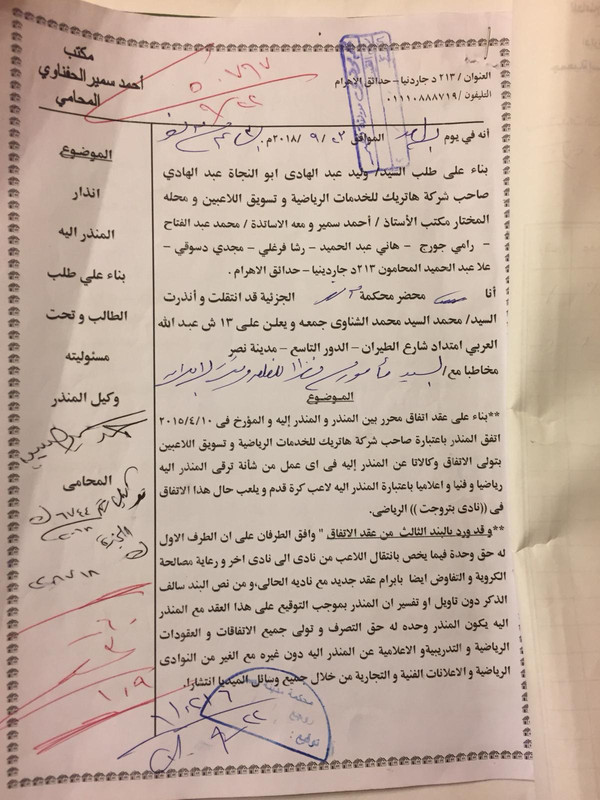 مكتب
أحمد سمير الحفناوي
المحامي
العنوان / ٢١٣ د جاردنيا - حدائق الاهرام
التليفون /٠١١١٠٨٨٨٧١٩
٥٠٧٦٧
٩/٢٢
أنه في يوم الموافق ٢٢ / ٩ /٢٠١٨م
بناء على طلب السيد/ وليد عبد الهادى ابو النجاة عبد الهادي
صاحب شركة هاتريك للخدمات الرياضية و تسويق اللاعبين و محله
المختار مكتب الأستاذ / أحمد سمير و معه الاساتذة / محمد عبد الفتاح
– رامي جورج – هاني عبد الحميد – رشا فرغلي – مجدي دسوقي –
علا عبد الحميد المحامون ٢١٣د جاردينيا – حدائق الاهرام .
أنا محضر محكمة الجزئية قد انتقلت و أنذرت
السيد/ محمد السيد محمد الشناوى جمعه و يعلن على ١٣ ش عبد الله
العربي امتداد شارع الطيران – الدور التاسع – مدينة نصر
مخاطبا مع
الموضوع
**بناء على عقد اتفاق محرر بين المنذر و المنذر إليه و المؤرخ فى ٢٠١٥/٤/١٠
اتفق المنذر باعتبارة صاحب شركة هاتريك للخدمات الرياضية و تسويق اللاعبين
بتولى الاتفاق وكالاتا عن المنذر إليه فى اى عمل من شأنة ترقى المنذر اليه
رياضيا و فنيا و اعلاميا باعتبارة المنذر اليه لاعب كرة قدم و يلعب حال هذا الاتفاق
فى ((نادى بتروجت )) الرياضي.
**و قد ورد بالبند الثالث من عقد الاتفاق " وافق الطرفان على ان الطرف الاول
له حق وحدة فيما يخص بانتقال اللاعب من نادى الى نادى اخر و رعاية مصالحة
الكروية و التفاوض ايضا بابرام عقد جديد مع ناديه الحالى،،و من نص البند سالف
الذكر دون تاويل او تفسير ان المنذر بموجب التوقيع على هذا العقد مع المنذر
اليه يكون المنذر وحده له حق التصرف و تولى جميع الاتفاقات و العقودات
الرياضية و التدريبيةو الاعلامية عن المنذر اليه دون غيره مع الغير من النوادى
الرياضية و الاعلانات الفنية و التجارية من خلال جميع وسائل الميديا انتشارا.
الموضوع
انذار
المنذر اليه
بناء علي طلب
الطالب و تحت
مسئوليته
وكيل المنذر
المحامي